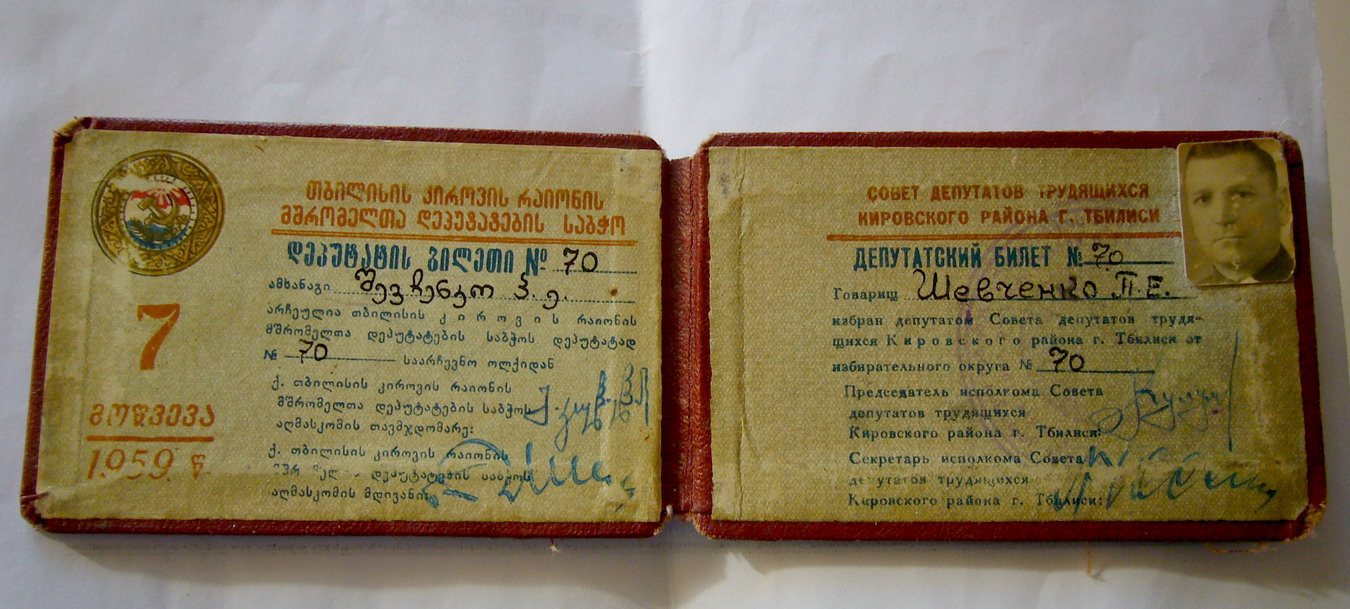 თბილისის კიროვის რაიონის
მშრომელთა დეპუტატების საბჭო
დეპუტატის ბილეთი № 70
ამხანაგი შევჩენკო პ. ე.
არჩეულია თბილისის კიროვის რაიონის
მშრომელთა დეპუტატების საბჭოს დეპუტატად
№ 70 საარჩევნო ოლქიდან
ქ. თბილისის კიროვის რაიონის
მშრომელთა დეპუტატების საბჭოს
აღმასკომის თავმჯდომარე:
ქ. თბილისის კიროვის რაიონის
დეპუტატების საბჭოს
აღმასკომის მდივანი:
7
მოწვევა
1959 წ.
СОВЕТ ДЕПУТАТОВ ТРУДЯЩИХСЯ
КИРОВСКОГО РАЙОНА Г. ТБИЛИСИ
ДЕПУТАТСКИЙ БИЛЕТ № 70
Товарищ Шевченко П. Е.
избран депутатом Совета депутатов трудя-
щихся Кировского района г. Тбилиси от
избирательного округа № 70
Председатель исполкома Совета
депутатов трудящихся
Кировского района г. Тбилиси:
Секретарь исполкома Совета
депутатов трудящихся
Кировского района г. Тбилиси: